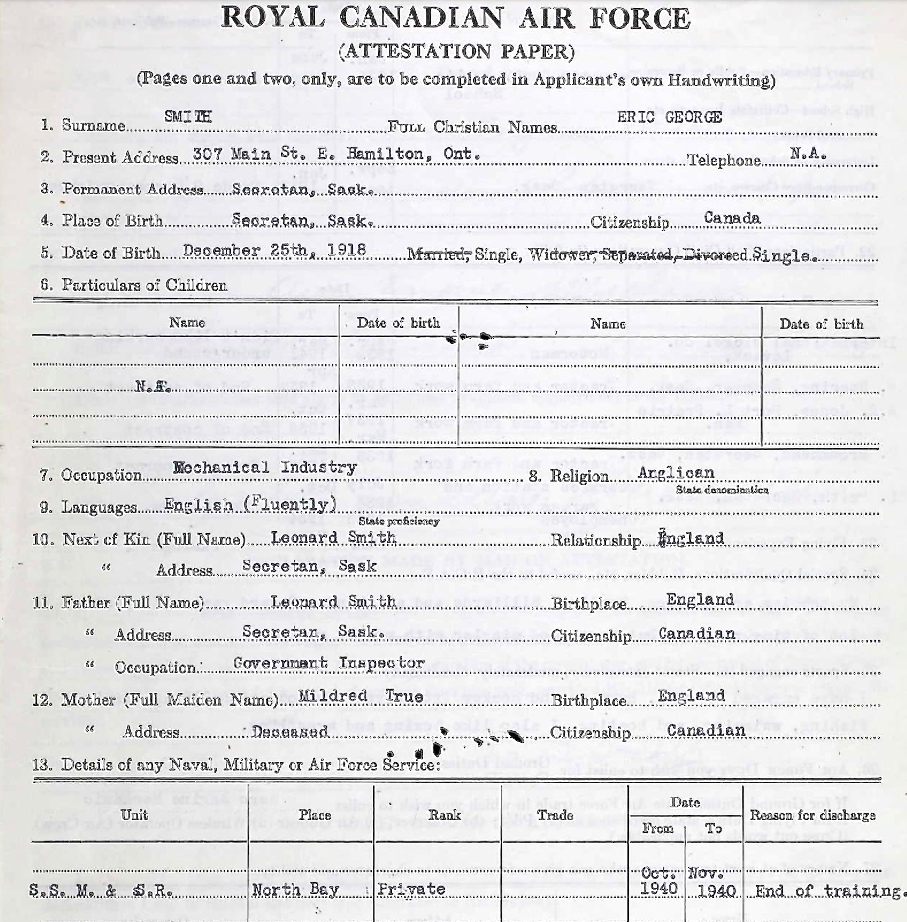 ROYAL CANADIAN AIR FORCE
(ATTESTATION PAPER)
(Pages one and two, only, are to be completed in Applicant's own Handwriting)
1. Surname SMITH FULL Christian Names ERIC GEORGE
2. Present Address 307 Main St. E. Hamilton, Ont. Telephone N.A.
3. Permanent Address Secretan, Sask.
4. Place of Birth Secretan, Sask. Citizenship Canada
5. Date of Birth December 25th, 1918 Married, Single, Widower, Separated, Divorced. Single.
6. Particulars of Children
Name Date of birth Name Date of birth
7. Occupation Mechanical Industry 8. Religion Anglican
State denomination
9. Languages English (Fluently)
State proficiency
10. Next of Kin (Full Name) Leonard Smith Relationship England
" Address Secretan, Sask
11. Father (Full Name) Leonard Smith Birthplace England
" Address Secretan, Sask. Citizenship Canadian
" Occupation: Government Inspector
12. Mother (Full Maiden Name) Mildred True Birthplace England
" Address Deceased Citizenship Canadian
13. Details of any Naval, Military or Air Force Service:
Unit Place Rank Trade Date Reason for discharge
From To
Oct. Nov.
S.S.M. & S.R. North Bay Private 1940 1940 End of training.